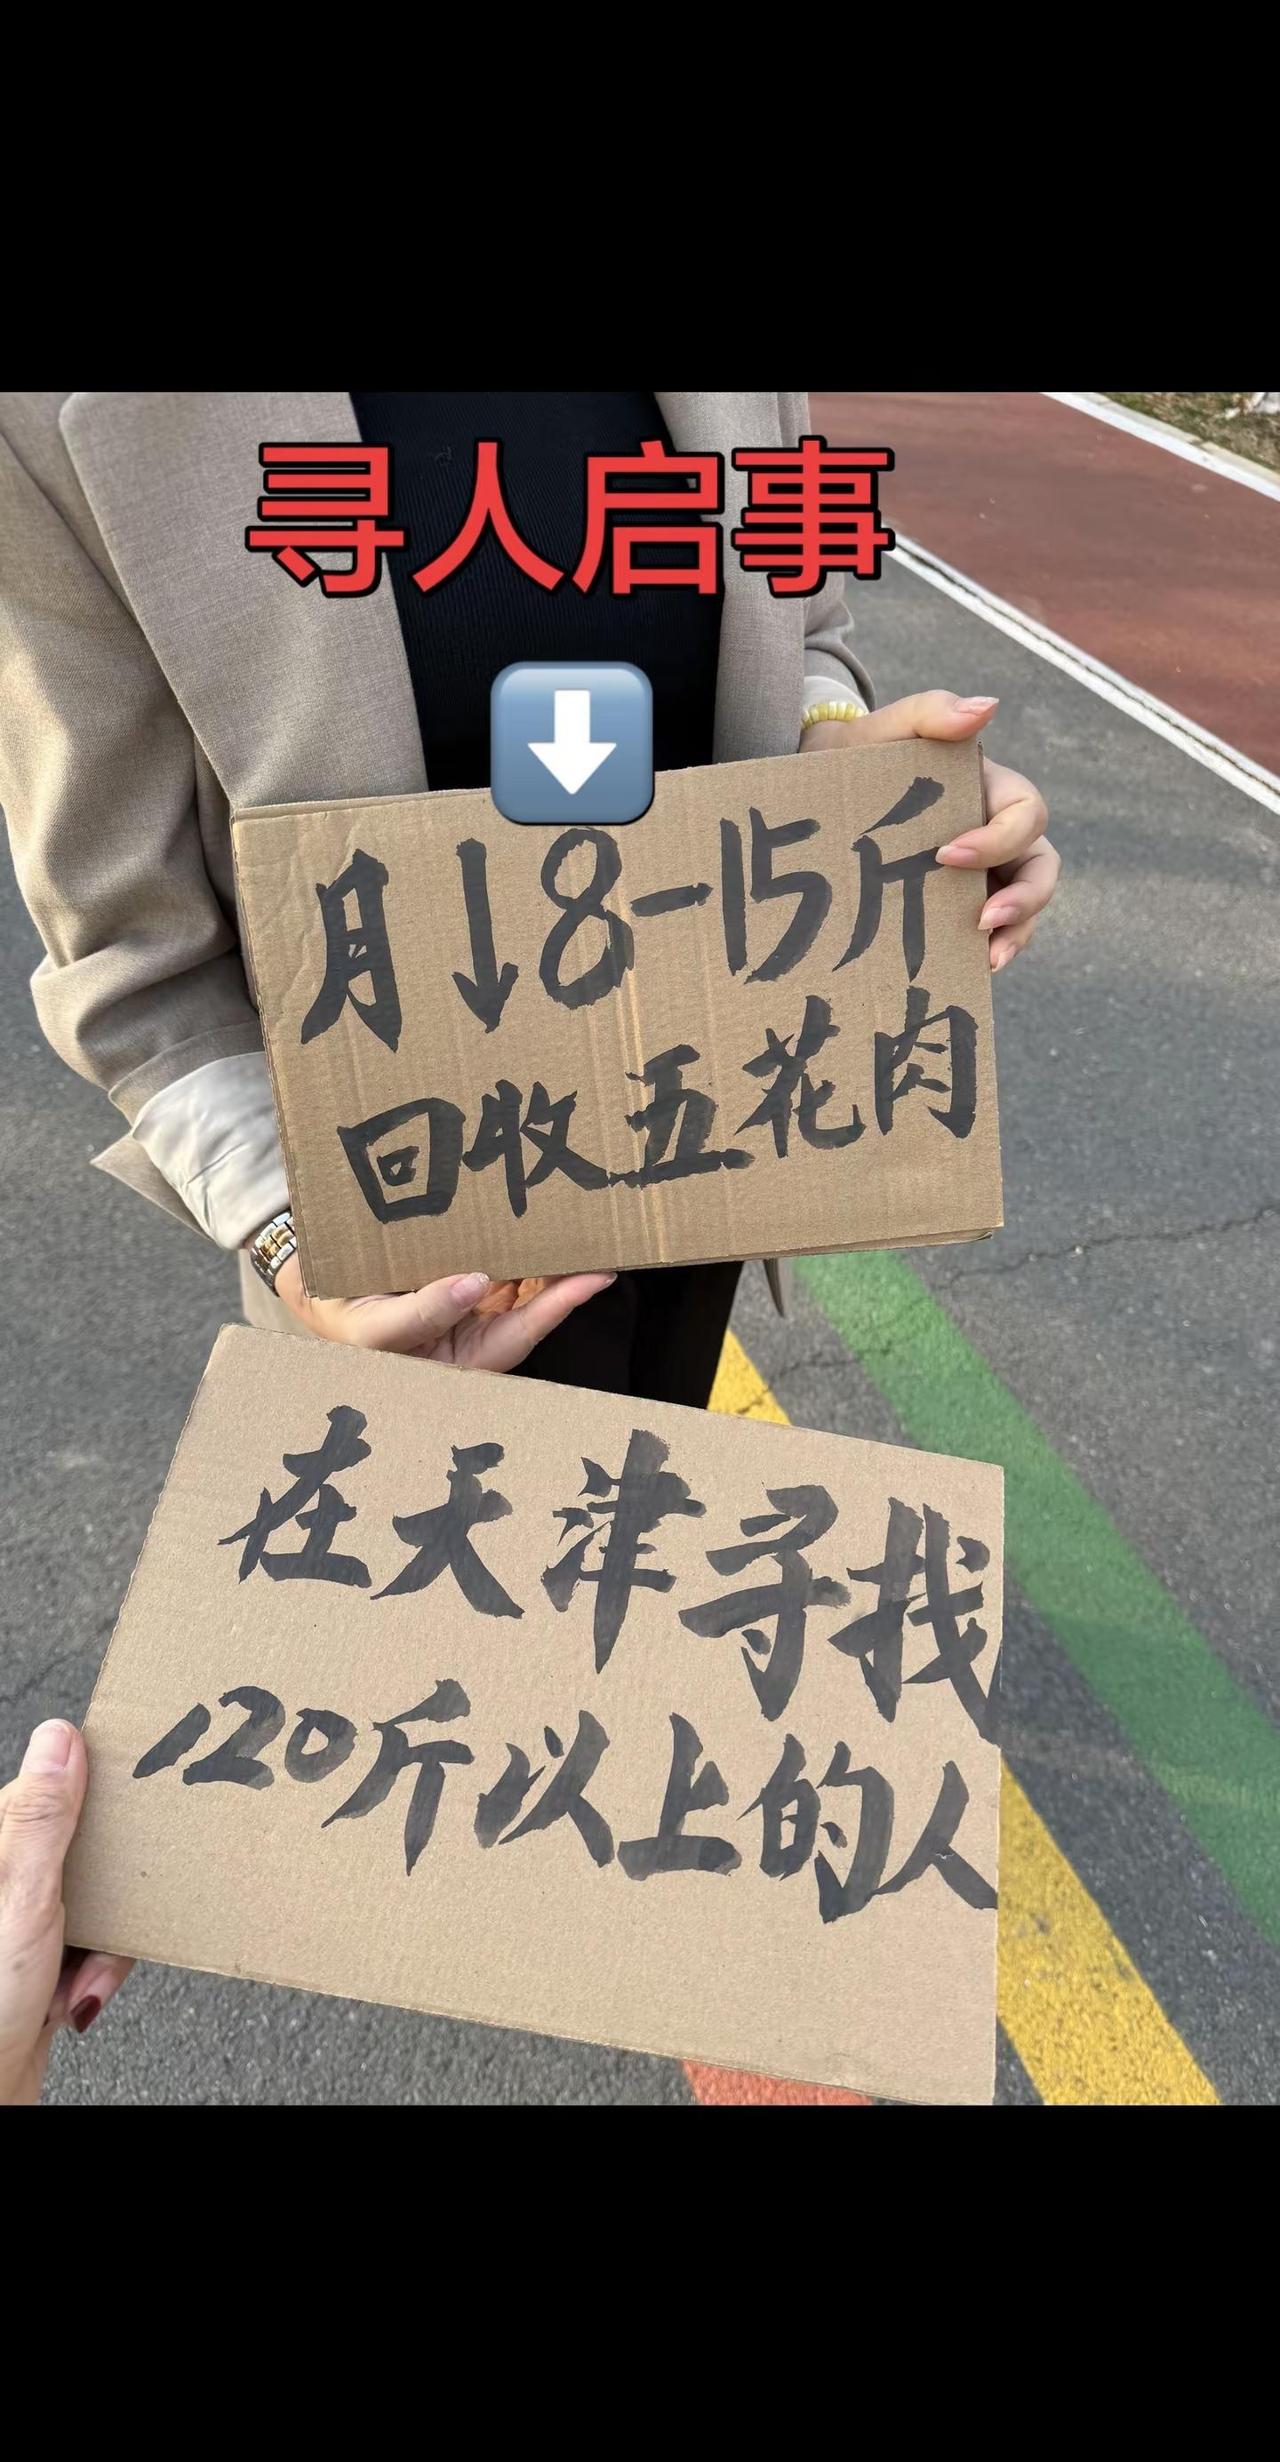 寻人启事
月↓8-15斤
回收五花肉
在天津寻找
120斤以上的人